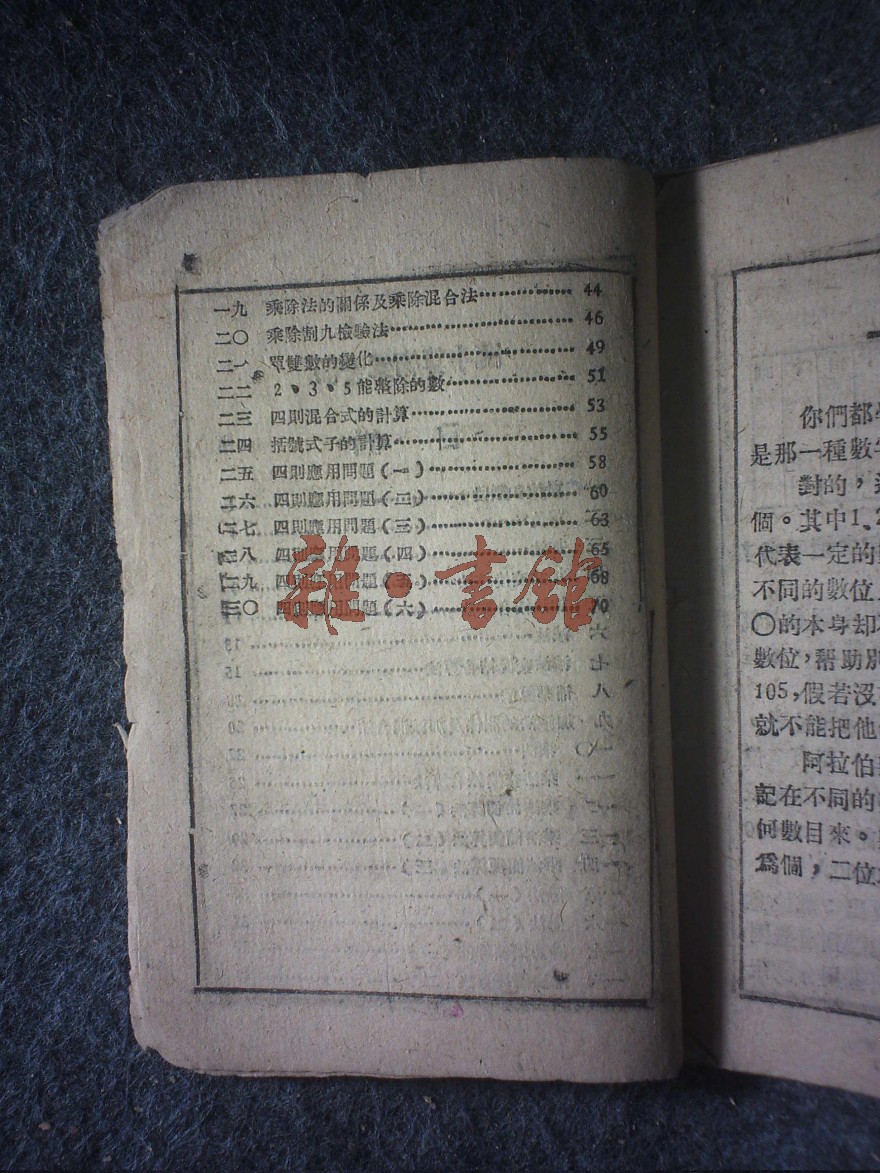 一九 乘除法的關係及乘除混合法 44
二〇 乘除割九檢驗法 46
二一 單雙數的變化 49
二二 2、3、5能整除的數 51
二三 四則混合式的計算 53
二四 括號式子的計算 55
二五 四則應用問題(一) 58
二六 四則應用問題(二) 60
二七 四則應用問題(三) 63
二八 四則應用問題(四) 65
二九 四則應用問題(五) 68
三〇 四則應用問題(六) 70
雜·書館
你們都
是那一種數
對的，
個。其中1、2
代表一定的
不同的數位
〇的本身却
數位，幫助別
105，假若沒
就不能把他
阿拉伯
記在不同的
何數目來。
爲個，二位